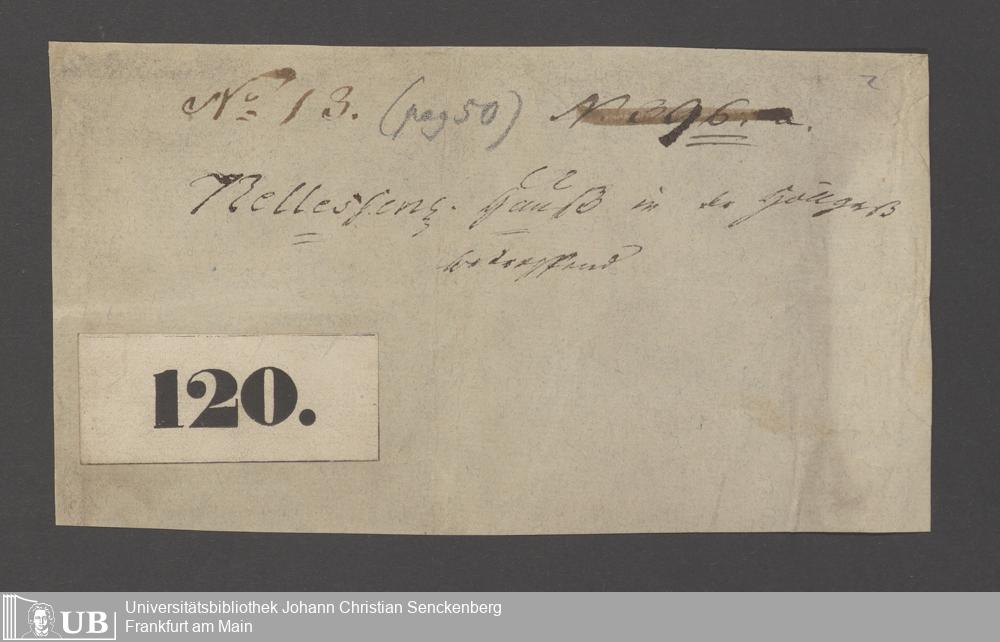 2
No. 13. (pag 50) N 396. a.
Nellessens. Hauß in der
betreffend
120.
UB
Universitätsbibliothek Johann Christian Senckenberg
Frankfurt am Main